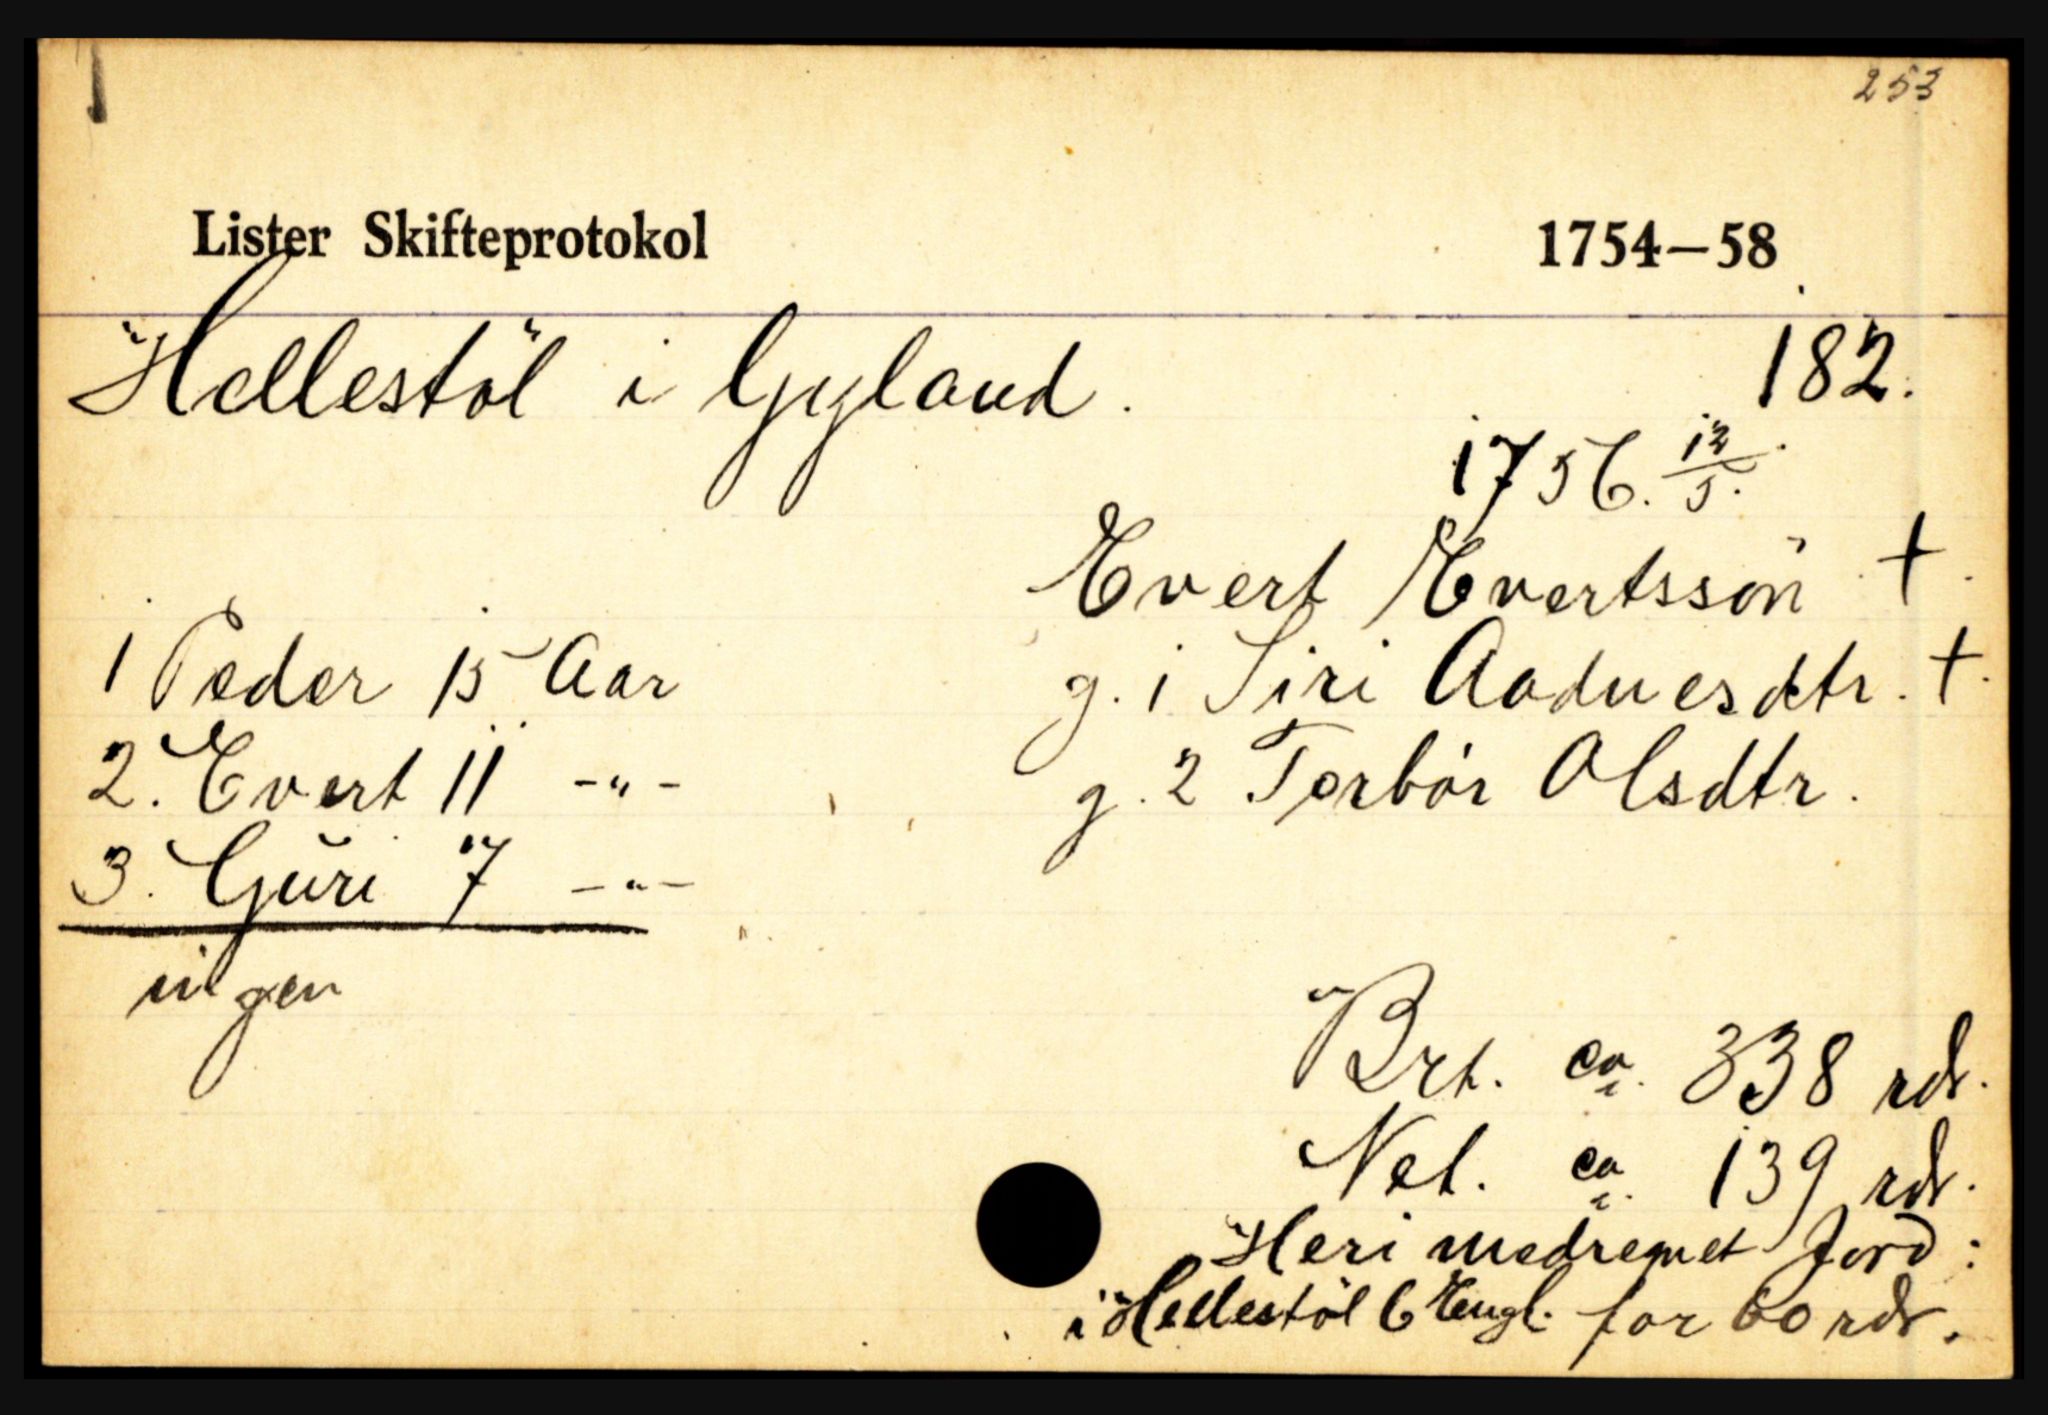 253
Lister Skifteprotokol 1754—58
Hellestöl i Gyland. 182.
1756. 12/5.
Evert Evertssön †.
1 Peder 15 Aar g. 1 Siri Aadnesdtr. †.
2. Evert 11 -"- g. 2 Torbör Olsdtr.
3. Guri 7 -"-
ingen
Brt. ca. 338 rdr.
Net. ca. 139 rdr.
Heri medregnet Jord:
i Hellestöl 6 Engl. for 60 rdr.